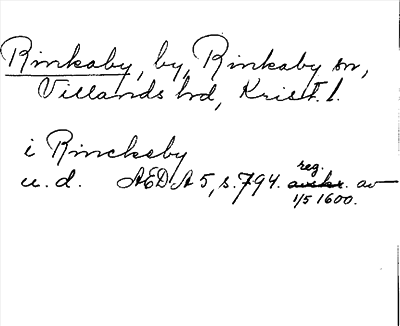 Rinkaby, by, Rinkaby sn,
Villands hd, Krist. l.
i Rinckeby
u. d. AEDA 5, s. 794. reg. avskr. av
1/5 1600.